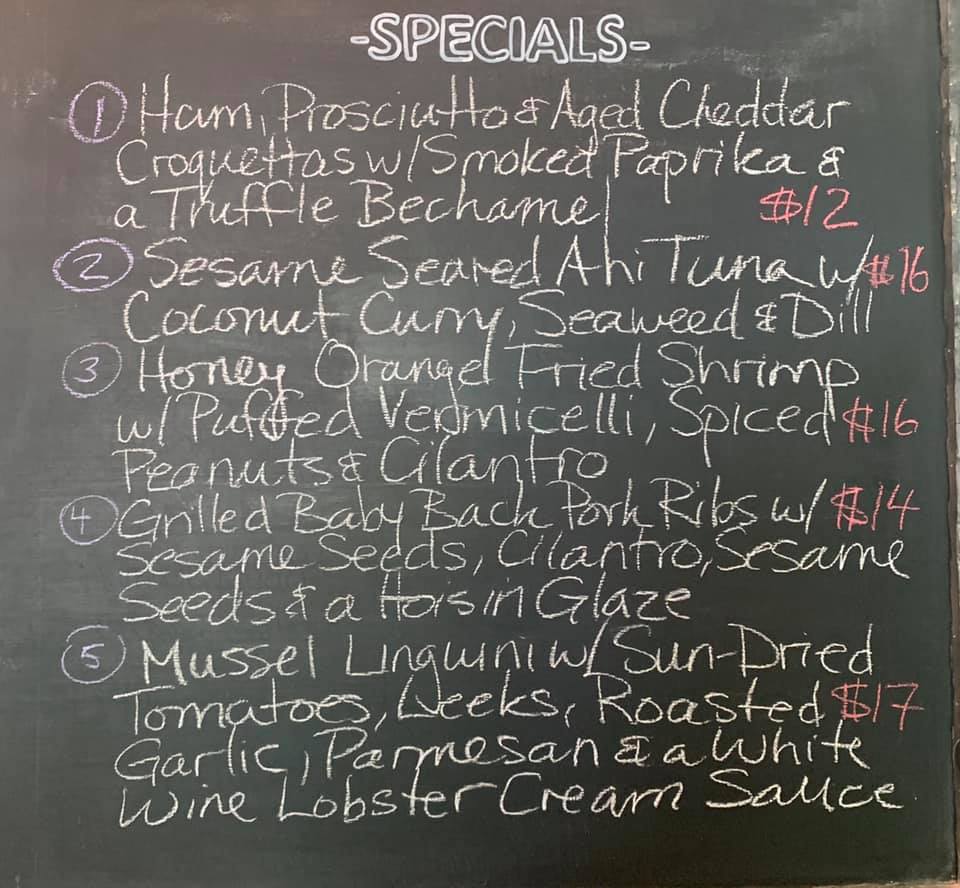 -SPECIALS-
1 Ham, Prosciutto & Aged Cheddar
Croquettas w/ Smoked Paprika &
a Truffle Bechamel $12
2 Sesame Seared Ahi Tuna w/ $16
Coconut Curry, Seaweed & Dill
3 Honey Orange Fried Shrimp
w/ Puffed Vermicelli, Spiced $16
Peanuts & Cilantro
4 Grilled Baby Back Pork Ribs w/ $14
Sesame Seeds, Cilantro, Sesame
Seeds & a Hoisin Glaze
5 Mussel Linguini w/ Sun-Dried
Tomatoes, Leeks, Roasted $17
Garlic, Parmesan & a White
Wine Lobster Cream Sauce